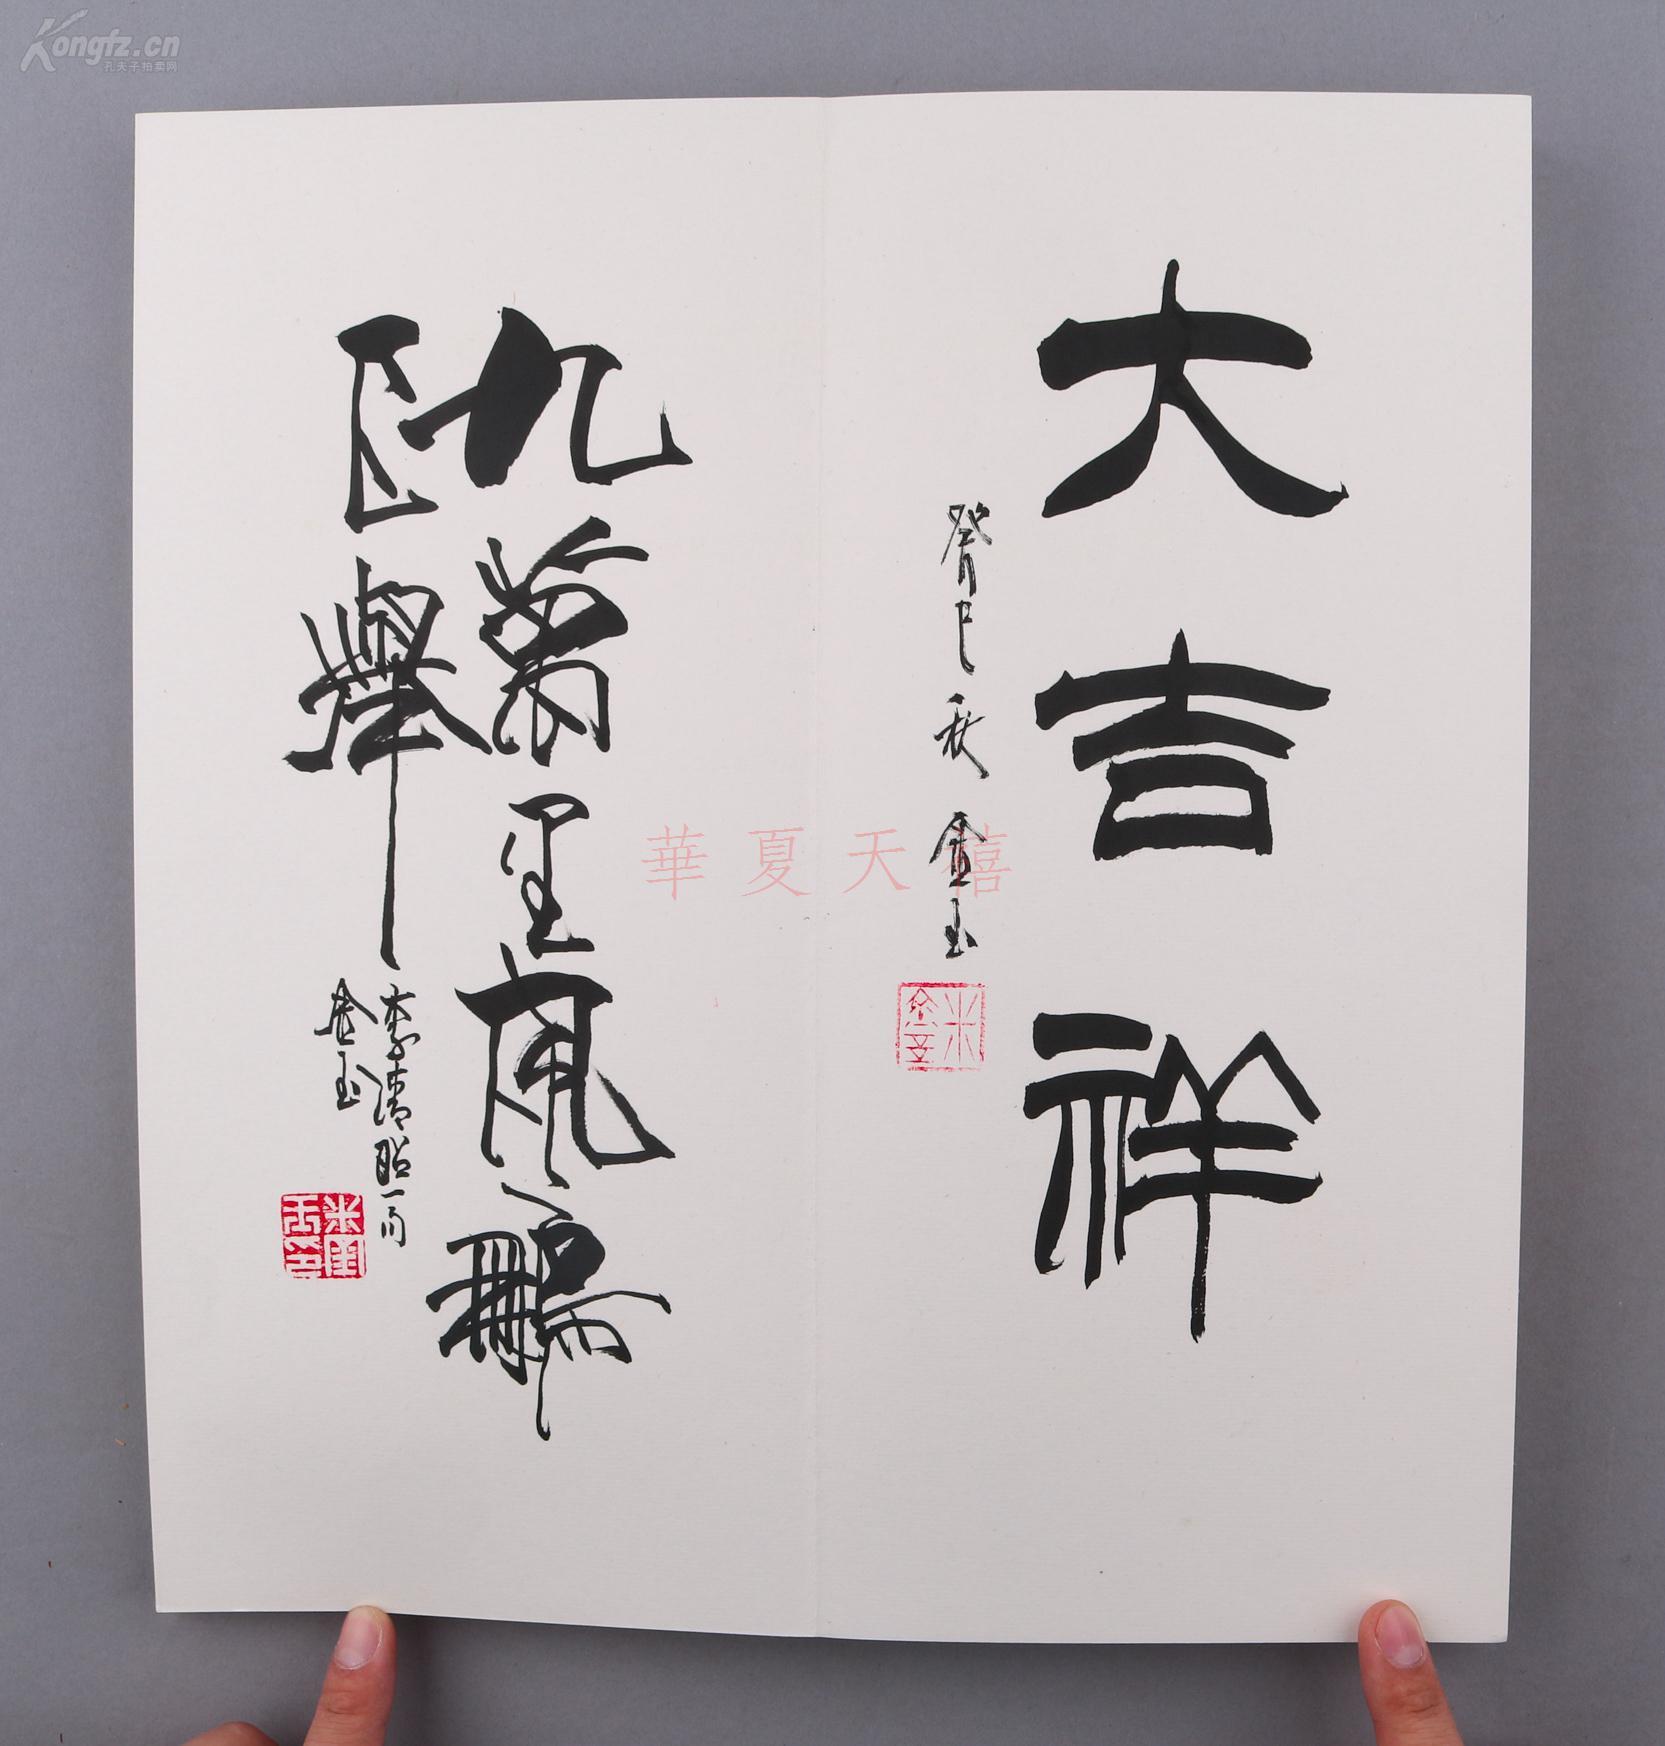 Kongfz.cn
孔夫子拍卖网
大吉祥
癸巳秋 金玉
米金玉
九萬里風鵬
正舉
李清照
金玉
華夏天禧